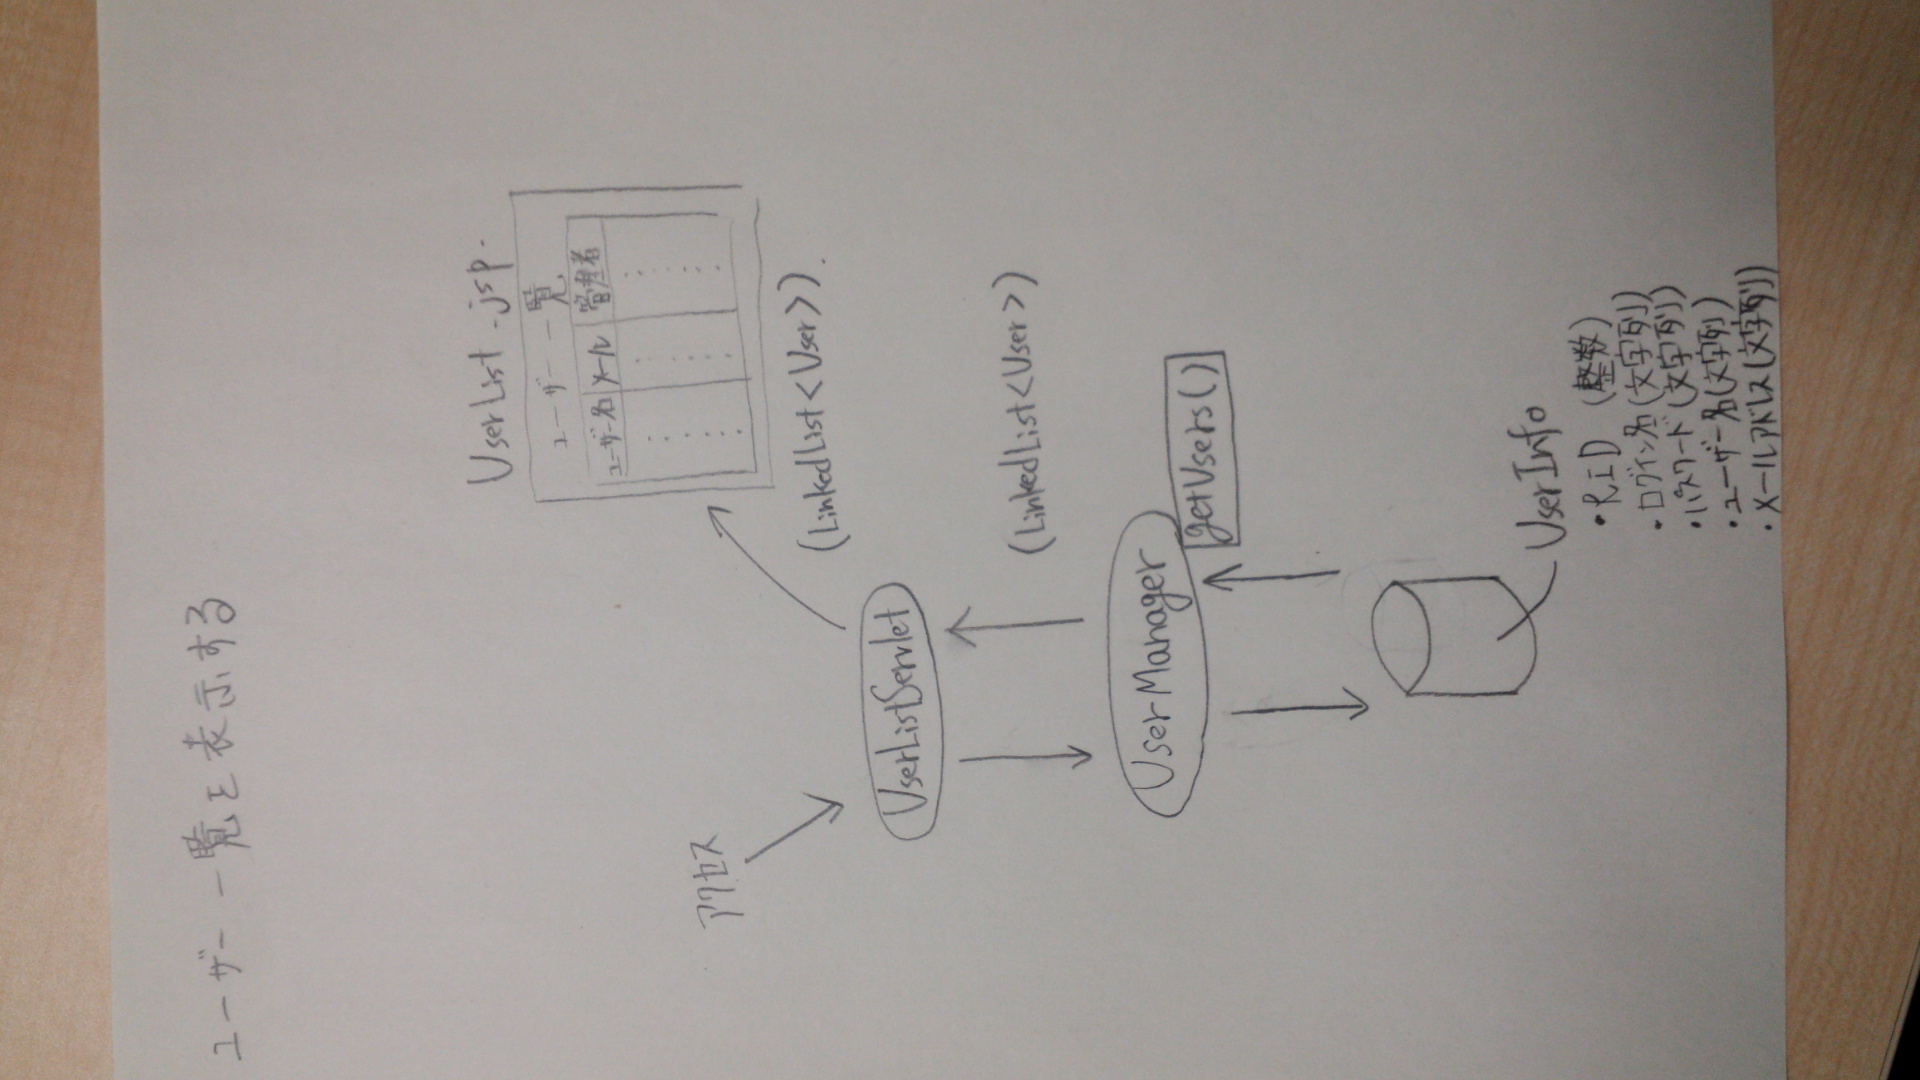 ユーザー一覧を表示する
UserList.jsp.
ユーザー一覧
ユーザー名 メール 管理者
アクセス
(LinkedList<User>).
UserListServlet
(LinkedList<User>)
UserManager
getUsers()
UserInfo
・RID (整数)
・ログイン名(文字列)
・パスワード(文字列)
・ユーザー名(文字列)
・メールアドレス(文字列)